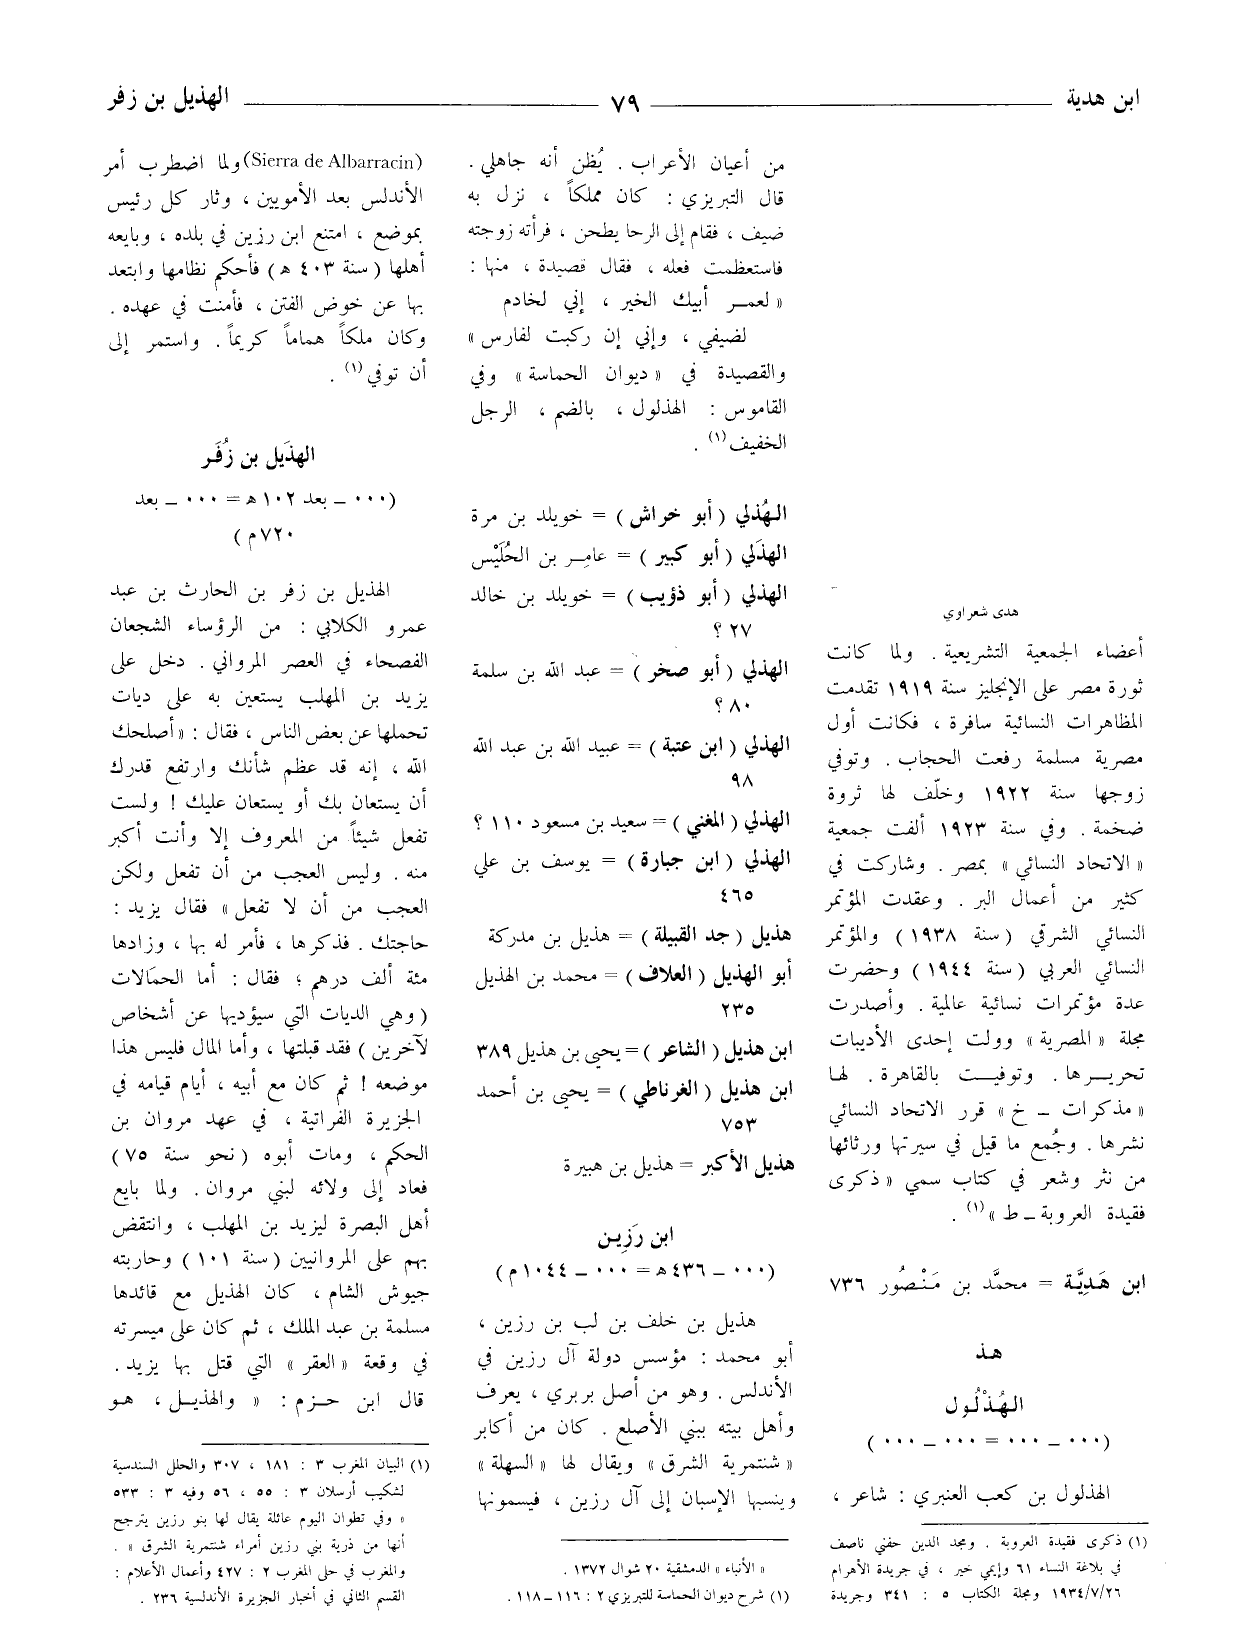 ابن هدية
٧٩
الهذيل بن زفر
هدى شعراوي
أعضاء الجمعية التشريعية . ولما كانت
ثورة مصر على الإنجليز سنة ١٩١٩ تقدمت
المظاهرات النسائية سافرة ، فكانت أول
مصرية مسلمة رفعت الحجاب . وتوفي
زوجها سنة ١٩٢٢ وخلّف لها ثروة
ضخمة . وفي سنة ١٩٢٣ ألفت جمعية
« الاتحاد النسائي » بمصر . وشاركت في
كثير من أعمال البر . وعقدت المؤتمر
النسائي الشرقي ( سنة ١٩٣٨ ) والمؤتمر
النسائي العربي ( سنة ١٩٤٤ ) وحضرت
عدة مؤتمرات نسائية عالمية . وأصدرت
مجلة « المصرية » وولت إحدى الأديبات
تحريـرها . وتوفيـت بالقاهرة . لهـا
« مذكرات ـ خ » قرر الاتحاد النسائي
نشرها . وجُمع ما قيل في سيرتها ورثائها
من نثر وشعر في كتاب سمي « ذكرى
فقيدة العروبة ـ ط » (١) .
ابن هَدِيَّة = محمَّد بن مَنْصُور ٧٣٦
هـذ
الهُذْلُول
( ٠٠٠ ـ ٠٠٠ = ٠٠٠ ـ ٠٠٠ )
الهذلول بن كعب العنبري : شاعر ،
(١) ذكرى فقيدة العروبة . ومجد الدين حفني ناصف
في بلاغة النساء ٦١ وإيمي خير ، في جريدة الأهرام
١٩٣٤/٧/٢٦ ومجلة الكتاب ٥ : ٣٤١ وجريدة
من أعيان الأعراب . يُظن أنه جاهلي .
قال التبريزي : كان مملكاً ، نزل به
ضيف ، فقام إلى الرحا يطحن ، فرأته زوجته
فاستعظمت فعله ، فقال قصيدة ، منها :
« لعمـر أبيك الخير ، إني لخادم
لضيفي ، وإني إن ركبت لفارس »
والقصيدة في « ديوان الحماسة » وفي
القاموس : الهذلول ، بالضم ، الرجل
الخفيف (١) .
الهُذلي ( أبو خراش ) = خويلد بن مرة
الهذَلي ( أبو كبير ) = عامِـر بن الحُلَيْس
الهذلي ( أبو ذؤيب ) = خويلد بن خالد
٢٧ ؟
الهذلي ( أبو صخر ) = عبد الله بن سلمة
٨٠ ؟
الهذلي ( ابن عتبة ) = عبيد الله بن عبد الله
٩٨
الهذلي ( المغني ) = سعيد بن مسعود ١١٠ ؟
الهذلي ( ابن جبارة ) = يوسف بن علي
٤٦٥
هذيل ( جد القبيلة ) = هذيل بن مدركة
أبو الهذيل ( العلاف ) = محمد بن الهذيل
٢٣٥
ابن هذيل ( الشاعر ) = يحيى بن هذيل ٣٨٩
ابن هذيل ( الغرناطي ) = يحيى بن أحمد
٧٥٣
هذيل الأكبر = هذيل بن هبيرة
ابن رَزِين
( ٠٠٠ ـ ٤٣٦ هـ = ٠٠٠ ـ ١٠٤٤ م )
هذيل بن خلف بن لب بن رزين ،
أبو محمد : مؤسس دولة آل رزين في
الأندلس . وهو من أصل بربري ، يعرف
وأهل بيته ببني الأصلع . كان من أكابر
« شنتمرية الشرق » ويقال لها « السهلة »
وينسبها الإسبان إلى آل رزين ، فيسمونها
« الأنباء » الدمشقية ٢٠ شوال ١٣٧٢ .
(١) شرح ديوان الحماسة للتبريزي ٢ : ١١٦ ـ ١١٨ .
(Sierra de Albarracin) ولما اضطرب أمر
الأندلس بعد الأمويين ، وثار كل رئيس
بموضع ، امتنع ابن رزين في بلده ، وبايعه
أهلها ( سنة ٤٠٣ هـ ) فأحكم نظامها وابتعد
بها عن خوض الفتن ، فأمنت في عهده .
وكان ملكاً هماماً كريماً . واستمر إلى
أن توفي (١) .
الهذَيل بن زُفَر
( ٠٠٠ ـ بعد ١٠٢ هـ = ٠٠٠ ـ بعد
٧٢٠ م )
الهذيل بن زفر بن الحارث بن عبد
عمرو الكلابي : من الرؤساء الشجعان
الفصحاء في العصر المرواني . دخل على
يزيد بن المهلب يستعين به على ديات
تحملها عن بعض الناس ، فقال : « أصلحك
الله ، إنه قد عظم شأنك وارتفع قدرك
أن يستعان بك أو يستعان عليك ! ولست
تفعل شيئاً من المعروف إلا وأنت أكبر
منه . وليس العجب من أن تفعل ولكن
العجب من أن لا تفعل » فقال يزيد :
حاجتك . فذكرها ، فأمر له بها ، وزادها
مئة ألف درهم ؛ فقال : أما الحمَالات
( وهي الديات التي سيؤديها عن أشخاص
لآخرين ) فقد قبلتها ، وأما المال فليس هذا
موضعه ! ثم كان مع أبيه ، أيام قيامه في
الجزيرة الفراتية ، في عهد مروان بن
الحكم ، ومات أبوه ( نحو سنة ٧٥ )
فعاد إلى ولائه لبني مروان . ولما بايع
أهل البصرة ليزيد بن المهلب ، وانتقض
بهم على المروانيين ( سنة ١٠١ ) وحاربته
جيوش الشام ، كان الهذيل مع قائدها
مسلمة بن عبد الملك ، ثم كان على ميسرته
في وقعة « العقر » التي قتل بها يزيد .
قال ابن حـزم : « والهذيـل ، هـو
(١) البيان المغرب ٣ : ١٨١ ، ٣٠٧ والحلل السندسية
لشكيب أرسلان ٣ : ٥٥ ، ٥٦ وفيه ٣ : ٥٣٣
« وفي تطوان اليوم عائلة يقال لها بنو رزين يترجح
أنها من ذرية بني رزين أمراء شنتمرية الشرق » .
والمغرب في حلى المغرب ٢ : ٤٢٧ وأعمال الأعلام :
القسم الثاني في أخبار الجزيرة الأندلسية ٢٣٦ .